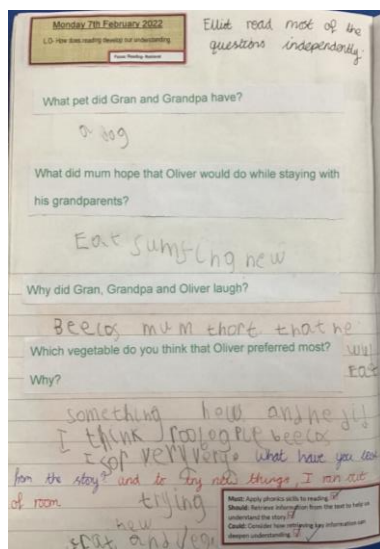 Monday 7th February 2022
L.O- How does reading develop our understanding
Focus Reading- Retrieval
Elliot read most of the
questions independently.
What pet did Gran and Grandpa have?
a dog
What did mum hope that Oliver would do while staying with
his grandparents?
Eat sumfing new
Why did Gran, Grandpa and Oliver laugh?
Beecos mum thort that he
wul
Eat
Which vegetable do you think that Oliver preferred most?
Why?
something new and he did
I think beecos
I sor very
What have you
from the story? and to try new things, I ran out
of room
trying
new
and
Must: Apply phonics skills to reading.
Should: Retrieve information from the text to help us
understand the story.
Could: Consider how retrieving key information can
deepen understanding.